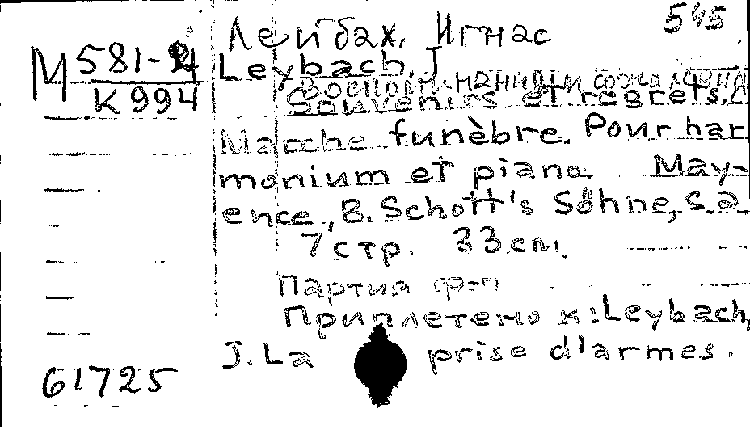 545
Лейбах, Игнас
М 581-24
К 994
Leybach, J
Воспоминания и сожаления
Souvenirs et regrets.
Marche funèbre. Pour har
monium et piano. May-
ence, B. Schott's Söhne, s.a.
7 стр. 33 cm.
Партия ф-п
Приплетено к: Leybach,
J. La prise d'armes.
61725